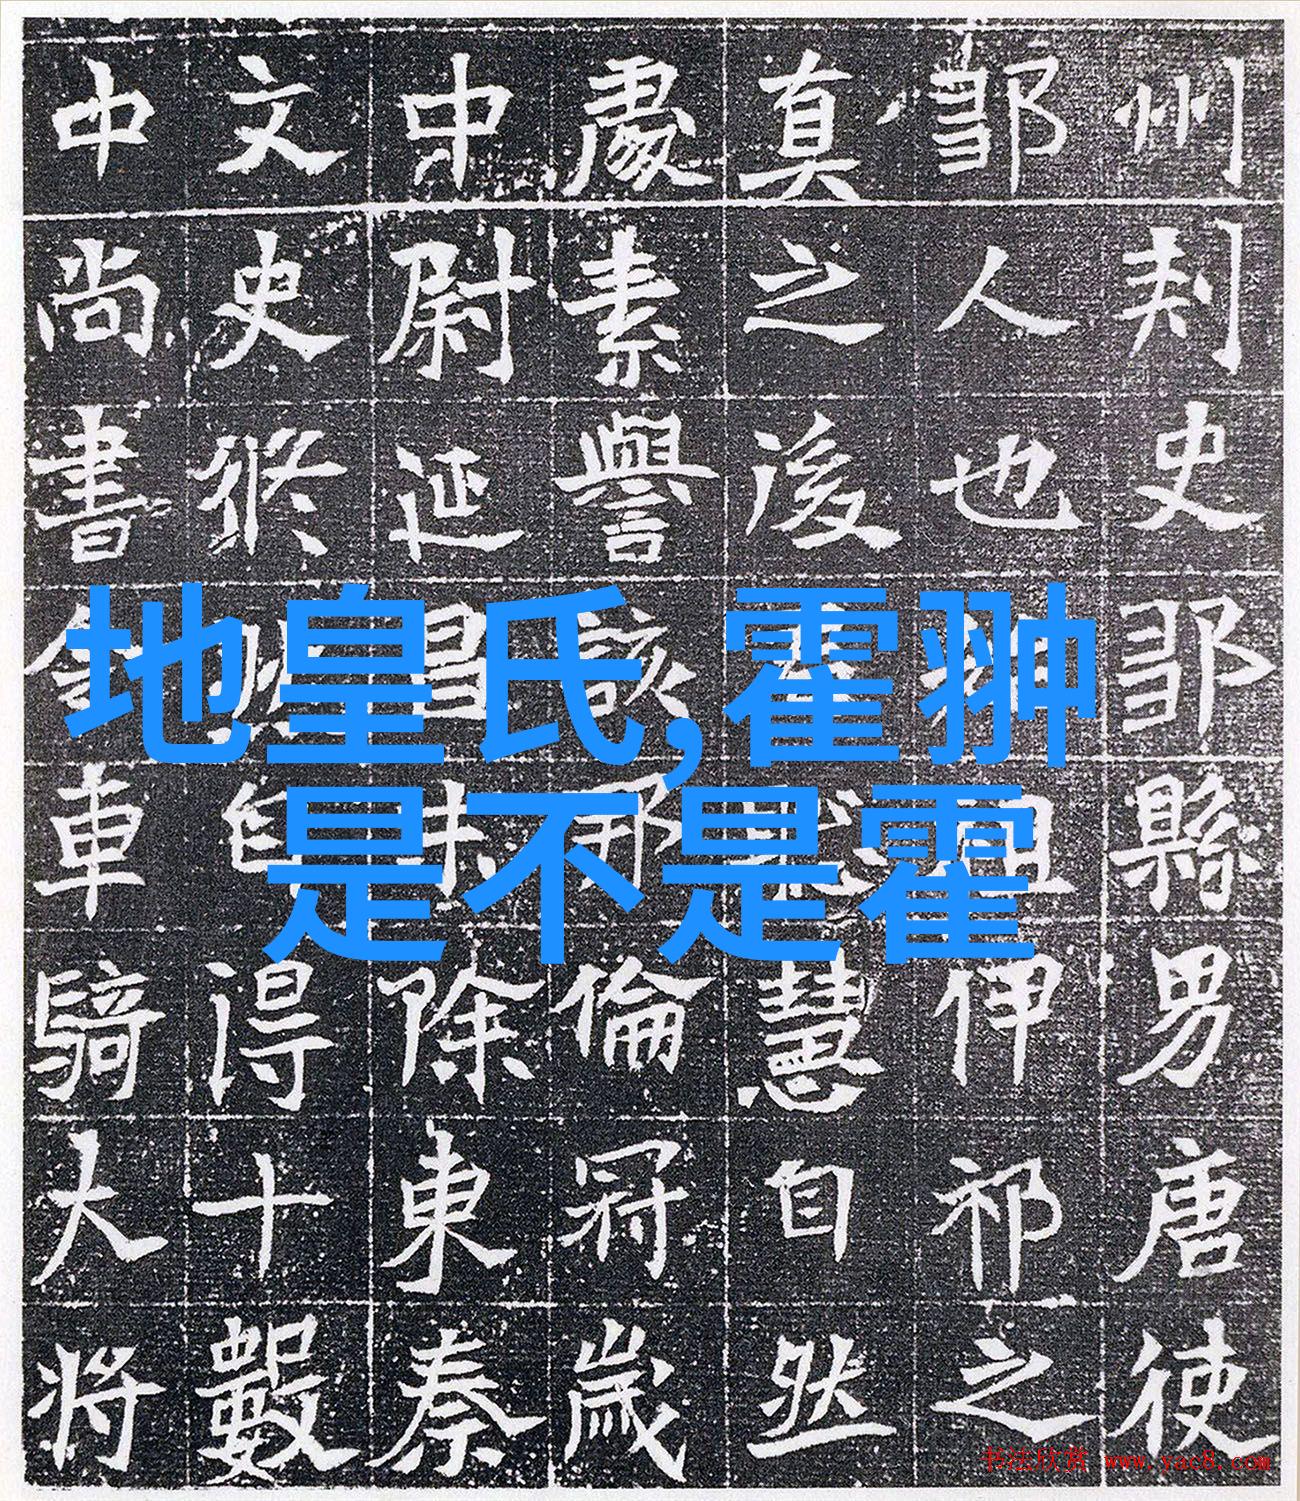 州刾史鄒縣男唐使
鄒人也祖伊祁之
真之後慧自然
處素譽該邦倫冠歲
中尉延昌末除東秦
文史自得十數
中尚書金車騎大將
地皇氏,霍翀
是不是霍
书法欣赏 www.yac8.com